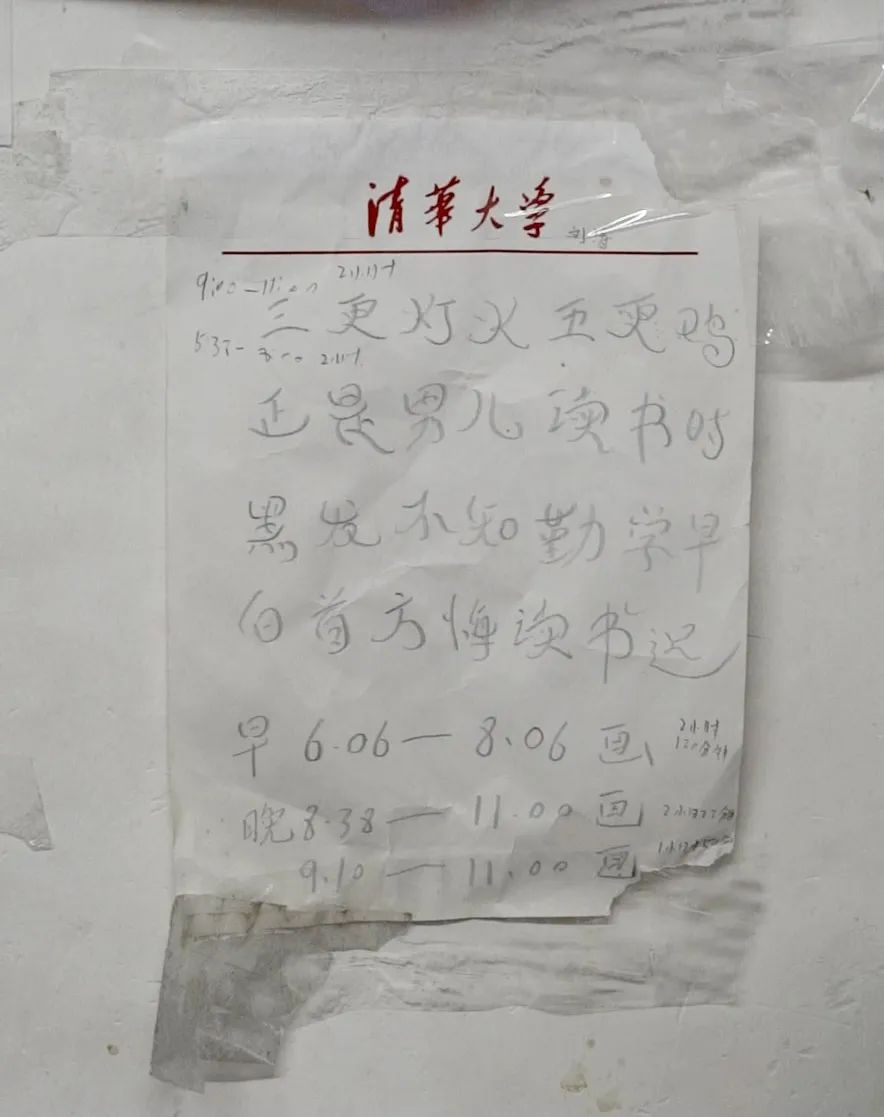 清華大学
9:00—11:00 2小时
三更灯火五更鸡
2小时
正是男儿读书时
黑发不知勤学早
白首方悔读书迟
早 6.06—8.06 画 2小时
120分钟
晚 8.38—11.00 画 2小时22分钟
9.10—11.00 画 1小时50分